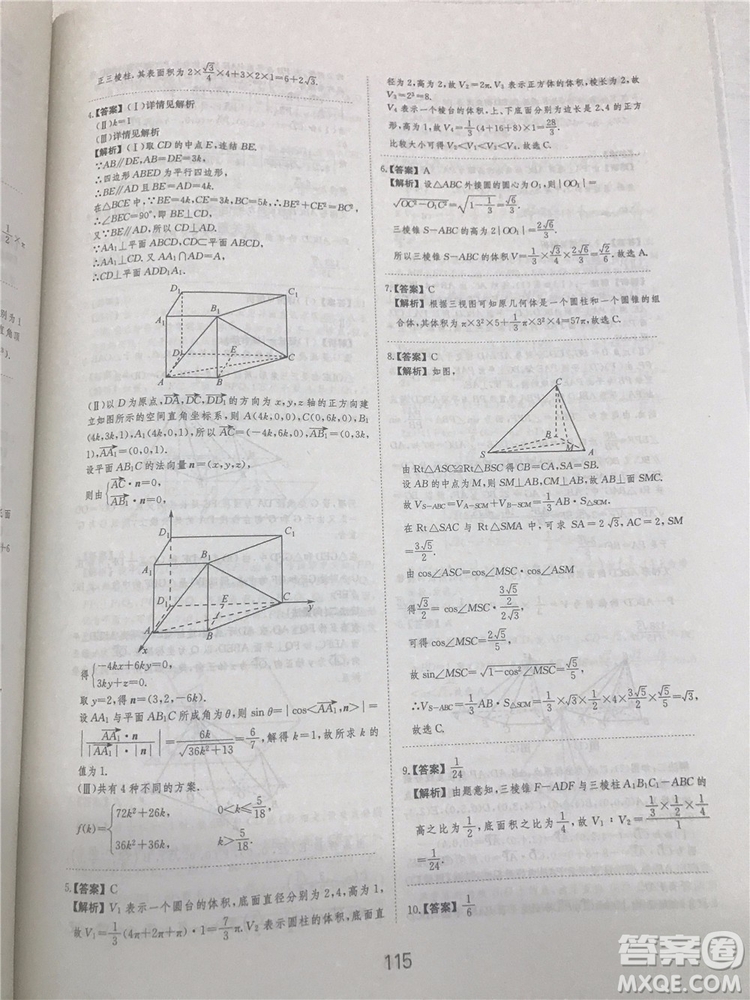 正三棱柱,其表面积为 2×√3/4×4+3×2×1=6+2√3.
4.【答案】(Ⅰ)详情见解析
(Ⅱ)k=1
(Ⅲ)详情见解析
【解析】(Ⅰ)取 CD 的中点 E,连结 BE.
∵AB∥DE,AB=DE=3k,
∴四边形 ABED 为平行四边形,
∴BE∥AD 且 BE=AD=4k.
在△BCE 中,∵BE²+CE²=BC²,
∴∠BEC=90°,即 BE⊥CD,
又∵BE∥AD,所以 CD⊥AD.
∵AA₁⊥平面 ABCD,CD⊂平面 ABCD
∴AA₁⊥CD. 又 AA₁∩AD=A,
∴CD⊥平面 ADD₁A₁
D₁
C₁
A₁
B₁
D
E
C
A
B
(Ⅱ)以 D 为原点,DA,DC,DD₁ 的方向为 x,y,z 轴的正方向建
立如图所示的空间直角坐标系,则 A(4k,0,0),C(0,6k,0),
B₁(4k,3k,1),A₁(4k,0,1),所以 AC=(-4k,6k,0),AB₁=(0,3k,
1),AA₁=(0,0,1).
设平面 AB₁C 的法向量 n=(x,y,z),
则由{AC·n=0, AB₁·n=0,
D₁
C₁
A₁
B₁
D
E
C
y
A
B
x
得{-4kx+6ky=0, 3ky+z=0,
取 y=2,得 n=(3,2,-6k).
设 AA₁ 与平面 AB₁C 所成角为 θ,则 sin θ=|cos<AA₁,n>|=
|AA₁·n/|AA₁|·|n||=6k/√(36k²+13)=6/7,解得 k=1,故所求 k 的
值为 1.
(Ⅲ)共有 4 种不同的方案.
f(k)={72k²+26k, 0<k≤5/18,
36k²+36k, k>5/18.
5.【答案】C
【解析】V₁ 表示一个圆台的体积,底面直径分别为 2,4,高为 1,
故 V₁=1/3(4π+2π+π)·1=7/3π,V₂ 表示圆柱的体积,底面直
径为 2,高为 2,故 V₂=2π. V₃ 表示正方体的体积,棱长为 2,故
V₃=2³=8.
V₄ 表示一个棱台的体积,上下底面分别为边长是 2,4 的正方
形,高为 1,故 V₄=1/3(4+16+8)×1=28/3.
比较大小可得 V₂<V₁<V₃<V₄,故选 C.
6.【答案】A
【解析】设△ABC 外接圆的圆心为 O₁,则|OO₁|=
√(OC²-O₁C²)=√(1-1/3)=√6/3.
三棱锥 S-ABC 的高为 2|OO₁|=2√6/3.
所以三棱锥 S-ABC 的体积 V=1/3×√3/4×2√6/3=√2/6. 故选 A.
7.【答案】C
【解析】根据三视图可知原几何体是一个圆柱和一个圆锥的组
合体,其体积 π×3²×5+1/3π×3²×4=57π,故选 C.
8.【答案】C
【解析】如图,
C
B
M
S
A
由 Rt△ASC≌Rt△BSC 得 CB=CA,SA=SB.
设 AB 的中点为 M,则 SM⊥AB,CM⊥AB,连接 SM,MC.
故 V_{S-ABC}=V_{A-SCM}+V_{B-SCM}=1/3AB·S_{△SCM}.
在 Rt△SAC 与 Rt△SMA 中,可求 SA=2√3,AC=2,SM=
3√5/2.
由 cos∠ASC=cos∠MSC·cos∠ASM
得√3/2=cos∠MSC·(3√5/2)/(2√3)
可得 cos∠MSC=2√5/5,
故 sin∠MSC=√(1-cos²∠MSC)=√5/5
∴V_{S-ABC}=1/3×AB·S_{△SCM}=1/3×√3×1/2×4×3√5/2×√5/5=√3,
故选 C.
9.【答案】1/24
【解析】由题意知,三棱锥 F-ADF 与三棱柱 A₁B₁C₁-ABC 的
高之比为 1/2,底面积之比为 1/4,故 V₁:V₂=(1/3×1/2×1/4)/1
=1/24.
10.【答案】1/6
115
答案圈
MXQE.COM